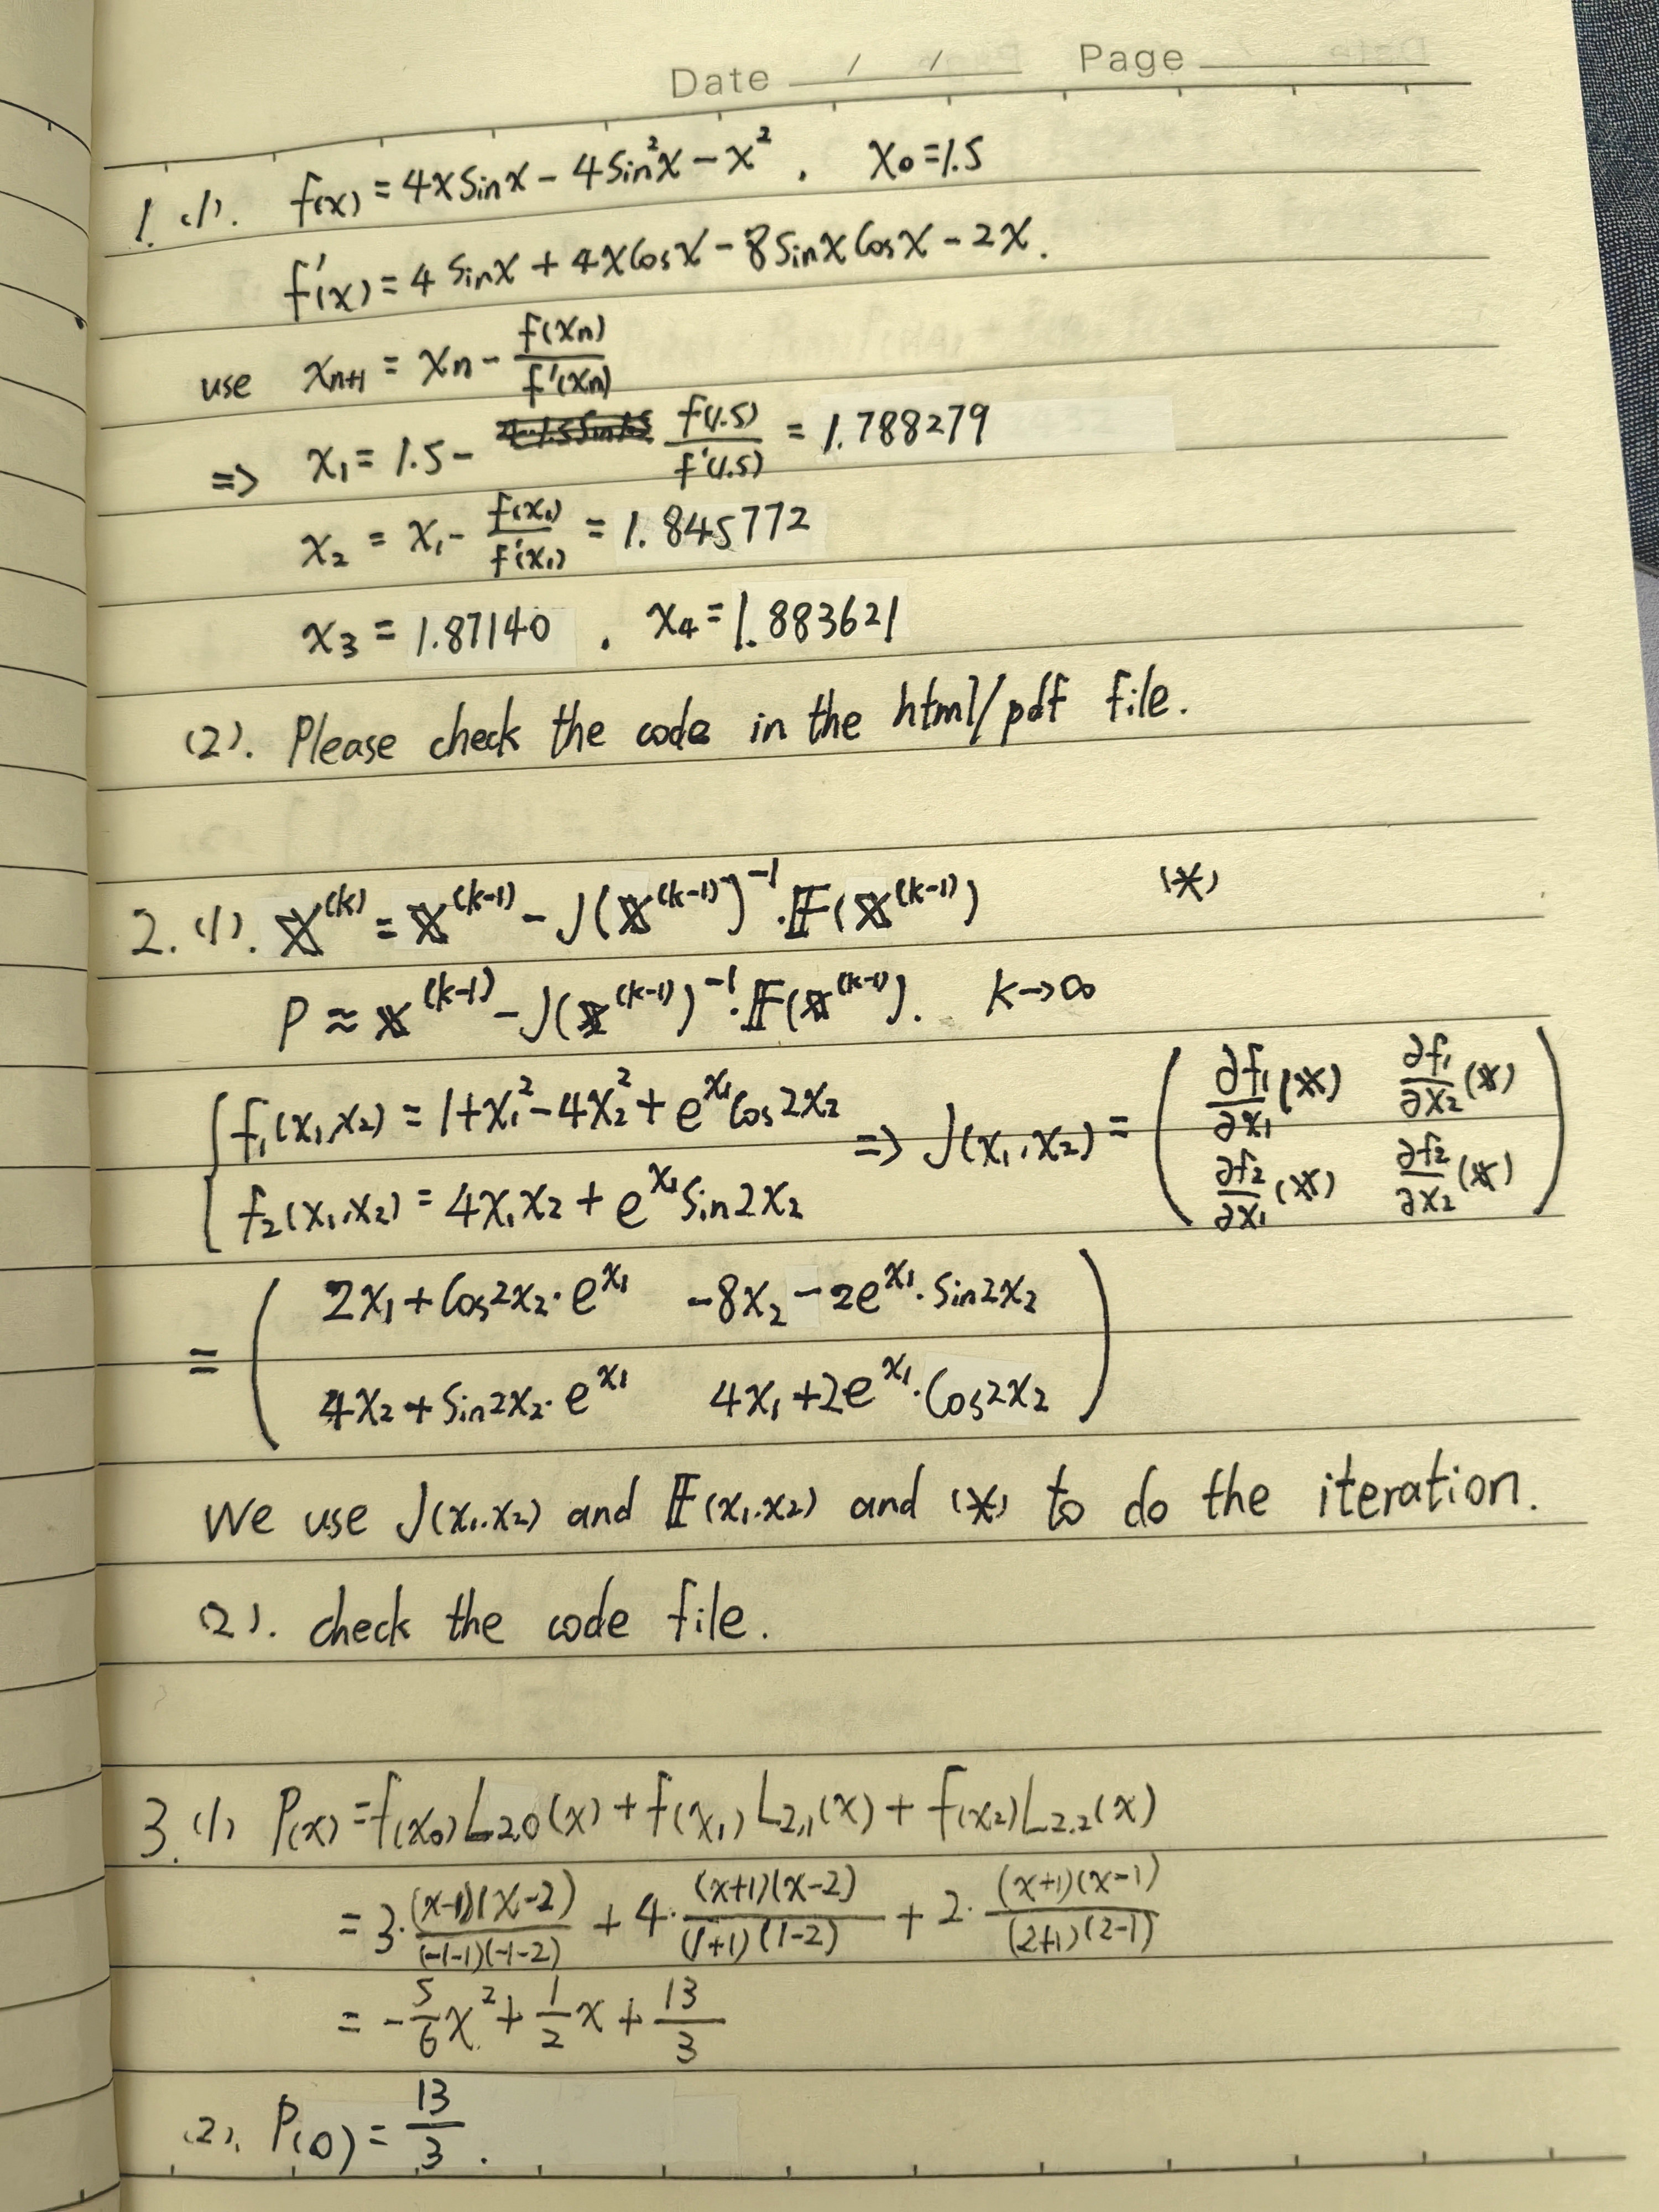 Date / / Page
1. (1). f(x) = 4x sin x − 4 sin²x − x². x₀ = 1.5
f'(x) = 4 sin x + 4x cos x − 8 sin x cos x − 2x.
use xₙ₊₁ = xₙ − f(xₙ)/f'(xₙ)
=> x₁ = 1.5 − f(1.5)/f'(1.5) = 1.788279
x₂ = x₁ − f(x₁)/f'(x₁) = 1.845772
x₃ = 1.87140 . x₄ = 1.883621
(2). Please check the code in the html/pdf file.
2. (1). 𝕏^(k) = 𝕏^(k-1) − J(𝕏^(k-1))^-1 · 𝔽(𝕏^(k-1)) (*)
P ≈ 𝕏^(k-1) − J(𝕏^(k-1))^-1 · 𝔽(𝕏^(k-1)). k→∞
{ f₁(x₁,x₂) = 1+x₁²−4x₂² + e^x₁ cos 2x₂ => J(x₁,x₂) = ( ∂f₁/∂x₁(𝕏) ∂f₁/∂x₂(𝕏)
f₂(x₁,x₂) = 4x₁x₂ + e^x₁ sin 2x₂ ∂f₂/∂x₁(𝕏) ∂f₂/∂x₂(𝕏) )
= ( 2x₁ + cos 2x₂ · e^x₁ −8x₂ − 2e^x₁ · sin 2x₂
4x₂ + sin 2x₂ · e^x₁ 4x₁ + 2e^x₁ · cos 2x₂ )
We use J(x₁,x₂) and 𝔽(x₁,x₂) and (*) to do the iteration.
(2). check the code file.
3. (1) P(x) = f(x₀)L₂,₀(x) + f(x₁)L₂,₁(x) + f(x₂)L₂,₂(x)
= 3 · (x-1)(x-2)/(-1-1)(-1-2) + 4 · (x+1)(x-2)/(1+1)(1-2) + 2 · (x+1)(x-1)/(2+1)(2-1)
= −5/6 x² + 1/2 x + 13/3
(2). P(0) = 13/3 .